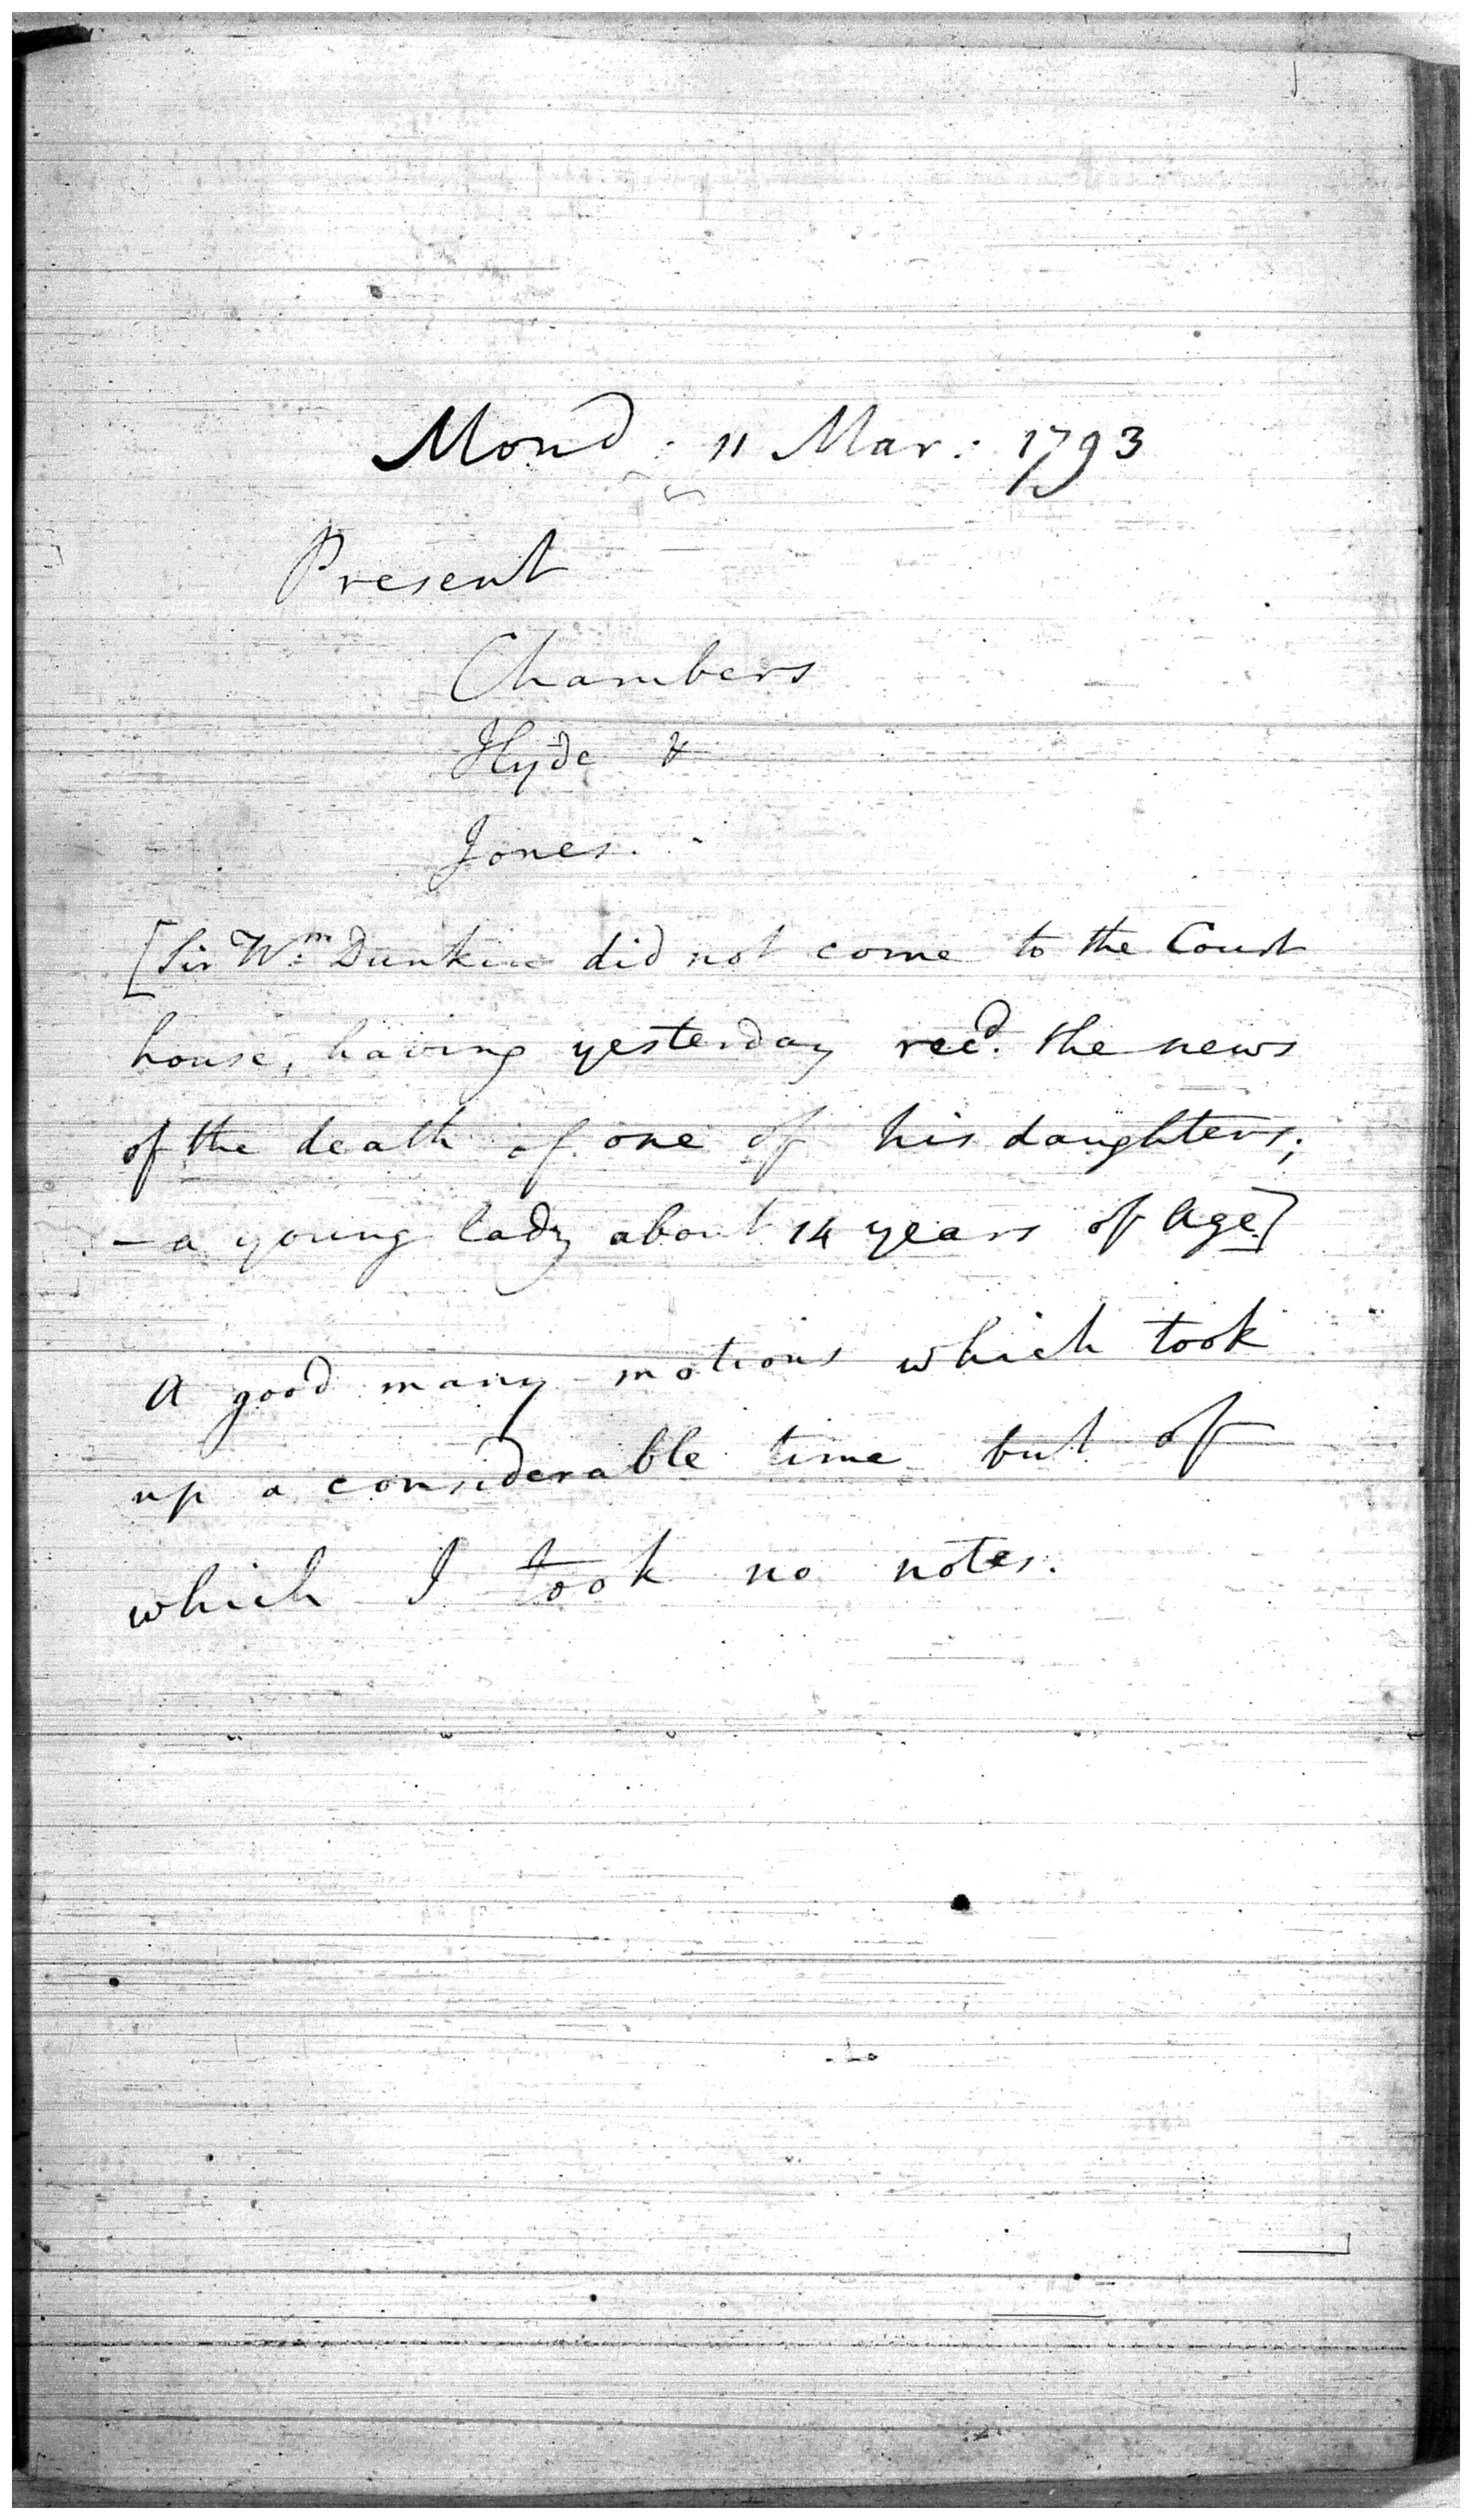 Mond: 11 Mar: 1793
Present
Chambers
Hyde &
Jones.
[Sir Wm: Dunkin did not come to the Court
house, having yesterday recd. the news
of the death of one of his daughters;
– a young lady about 14 years of age.]
A good many motions which took
up a considerable time but of
which I took no notes.